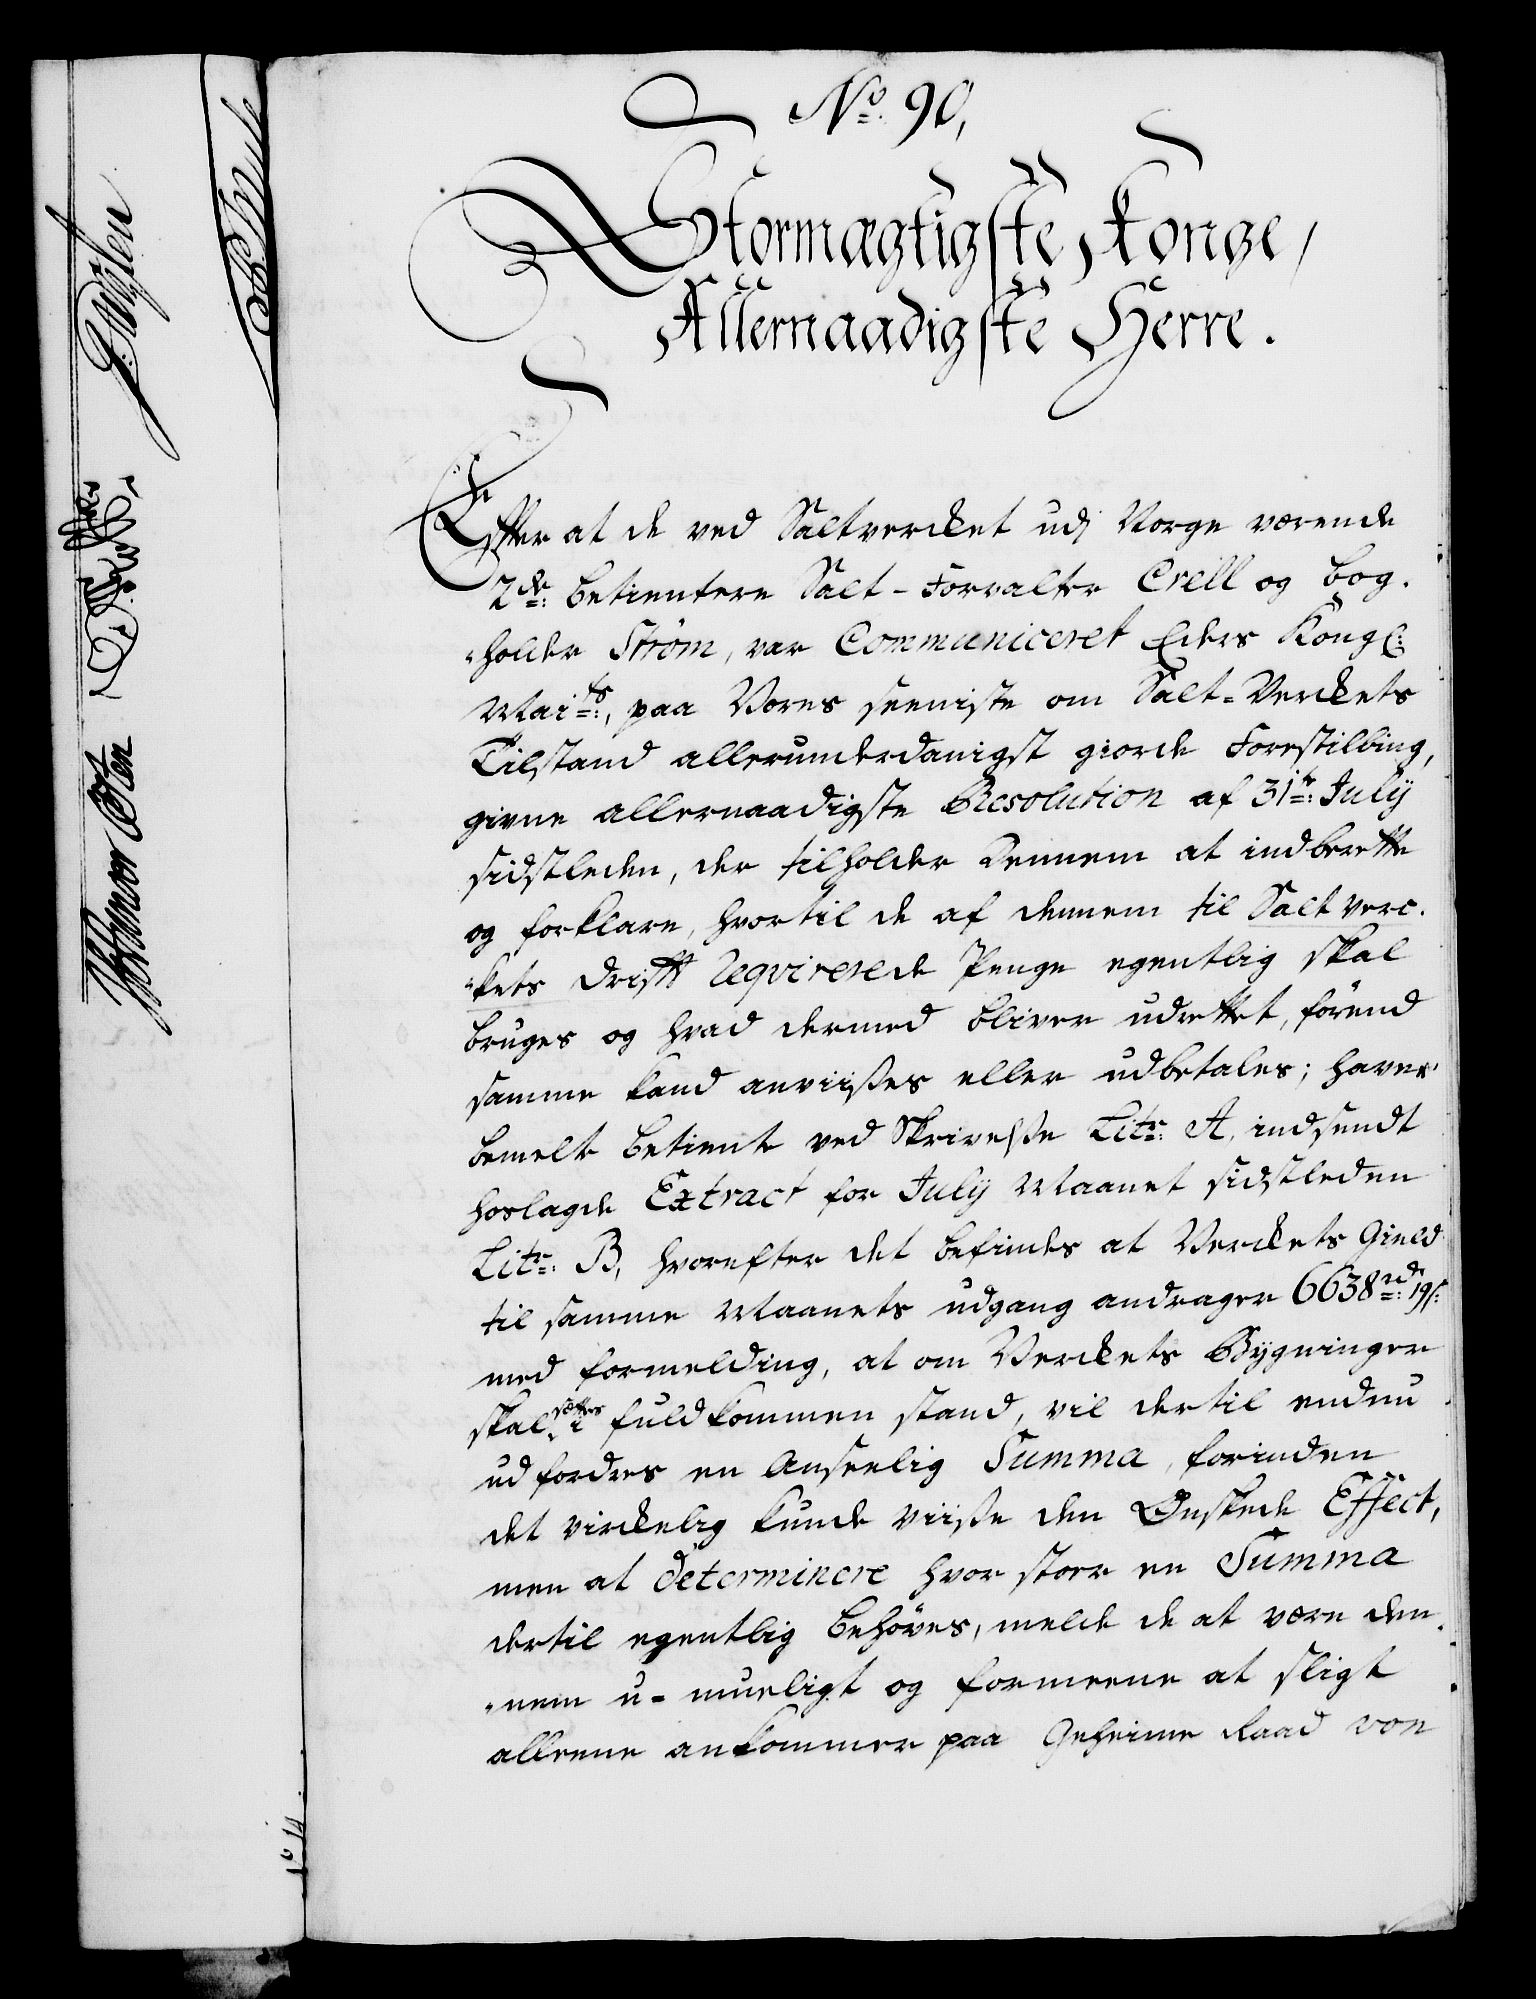 No. 90,
Stormægtigste Konge,
Allernaadigste Herre.
Efter at de ved Saltverket udj Norge værende
2de: betientere Salt-Forvalter Crell og bog-
"holder Strøm, var Communiceret Eders Kongl:
Maits:, paa Vores seeniste om Salt-Verkets
Tilstand allerunderdanigst giorde Forestilling,
givne allernaadigste Resolution af 31te: July
sidstleden, der tilholder dennem at indberette
og forklare, hvortil de af dennem til Saltverc-
"kets drifft Reqvirerede Penge egentlig skal
bruges og hvad dermed bliver udrettet, förend
samme kand anviises eller udbetales; haver
bemelte betiente ved Skrivelsse Litr: A, indsendt
hoslagde Extract for July Maanet sidstleden
Litr: B, hvorefter det befindes at Verkets Gield
til samme Maanets udgang andrager 6638rd: 19s:
med formelding, at om Verkets Bygninger
skal sættes i fuldkommen stand, vil dertil endnu
udfordres en Anseelig Summa, forinden
det virkelig kunde viise den Ønskede Effect,
men at determinere hvor stor en Summa
dertil egentlig behöves, melde de at være den-
"nem u-mueligt og formeene at sligt
alleene ankommer paa Geheime Raad von
No 14